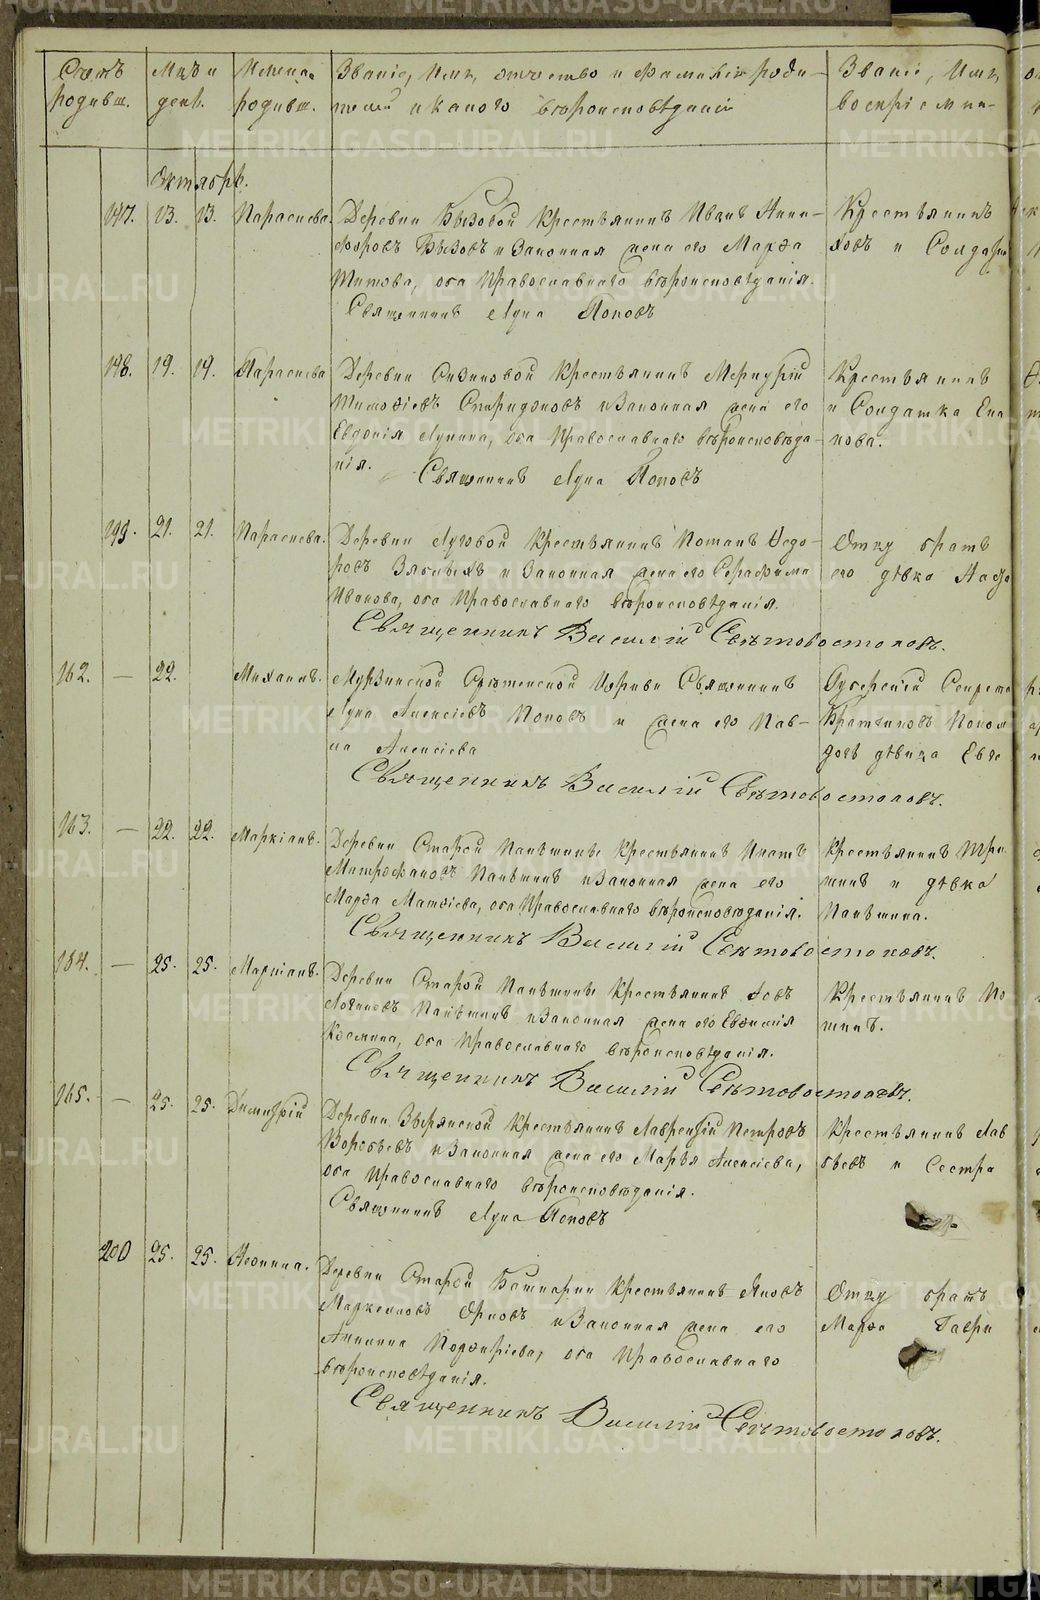 Счетъ родивш.
Мѣсяцъ и день.
Имена родивш.
Званіе, Имя, отчество и фамилія роди-
телей и какого вѣроисповѣданія
Званіе, Имя,
воспріемни-
Октябрь.
197. 13. 13. Параскева. Деревни Бызовой Крестьянинъ Иванъ Ники-
форовъ Бызовъ и Законная жена его Марфа
Титова, оба Православнаго вѣроисповѣданія.
Священникъ Лука Поповъ
Крестьянинъ
и Солдат
198. 19. 19. Параскева Деревни Сизиковой Крестьянинъ Меркурій
Тимофѣевъ Спиридоновъ и Законная жена его
Евдокія Лукина, оба Православнаго вѣроисповѣда-
нія.
Священникъ Лука Поповъ
Крестьянинъ
и Солдатка Ека
нова.
199. 21. 21. Параскева. Деревни Луговой Крестьянинъ Потапъ Ѳедо-
ровъ и Законная жена его Серафима
Иванова, оба Православнаго вѣроисповѣданія.
Священникъ Василій Свѣтовостоковъ.
Отцу братъ
его дѣвка
162. — 22. Михаилъ. Мурзинской Срѣтенской Церкви Священникъ
Лука Алексіевъ Поповъ и жена его Пав-
ла Алексіева
Священникъ Василій Свѣтовостоковъ.
Губернскій Секрета
Братчиковъ Поном
дочь дѣвица Евге
163. — 22. 22. Маркіанъ. Деревни Старой Паньшины Крестьянинъ Игнатъ
Митрофановъ Паньшинъ и Законная жена его
Марфа Матфіева, оба Православнаго вѣроисповѣданія.
Священникъ Василій Свѣтовостоковъ.
Крестьянинъ
шинъ и дѣвка
Паньшина.
164. — 25. 25. Маркіанъ. Деревни Старой Паньшины Крестьянинъ Іовъ
Логиновъ Паньшинъ и Законная жена его Евфимія
Космина, оба Православнаго вѣроисповѣданія.
Священникъ Василій Свѣтовостоковъ.
Крестьянинъ
шинъ.
165. — 25. 25. Димитрій Деревни Зырянской Крестьянинъ Лаврентій Петровъ
Воробьевъ и Законная жена его Марья Алексіева,
оба Православнаго вѣроисповѣданія.
Священникъ Лука Поповъ
Крестьянинъ Лав
бьевъ и Сестра
200 25. 25. Неонила. Деревни Старой Башкарки Крестьянинъ Яковъ
Маркеловъ и Законная жена его
Акилина Порфирьева, оба Православнаго
вѣроисповѣданія.
Священникъ Василій Свѣтовостоковъ.
Отцу братъ
Марфа Гаври
METRIKI.GASO-URAL.RU